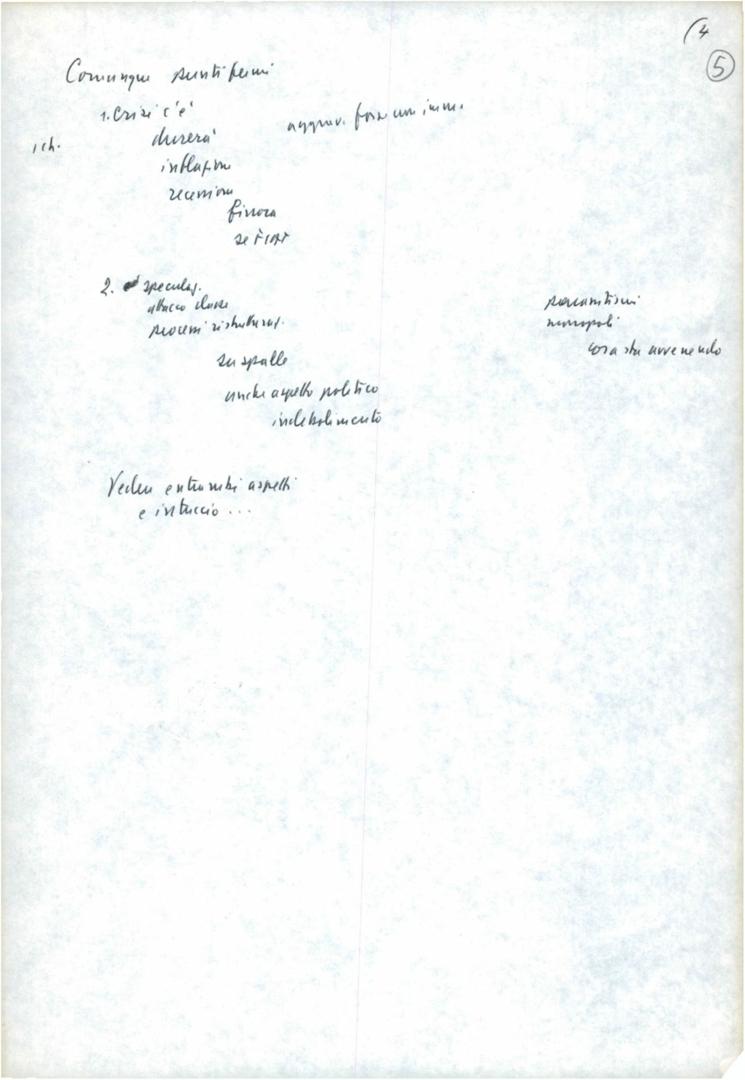 (4
5
Comunque punti fermi
1. Crisi c'è
aggrav. forse non imm.
durerà
inflazione
recessione
finora
se è così
2. speculaz.
attacco classe
processi ristrutturaz.
su spalle
anche aspetto politico
indebolimento
monopoli
cosa sta avvenendo
Vedere entrambi aspetti
e intreccio ...